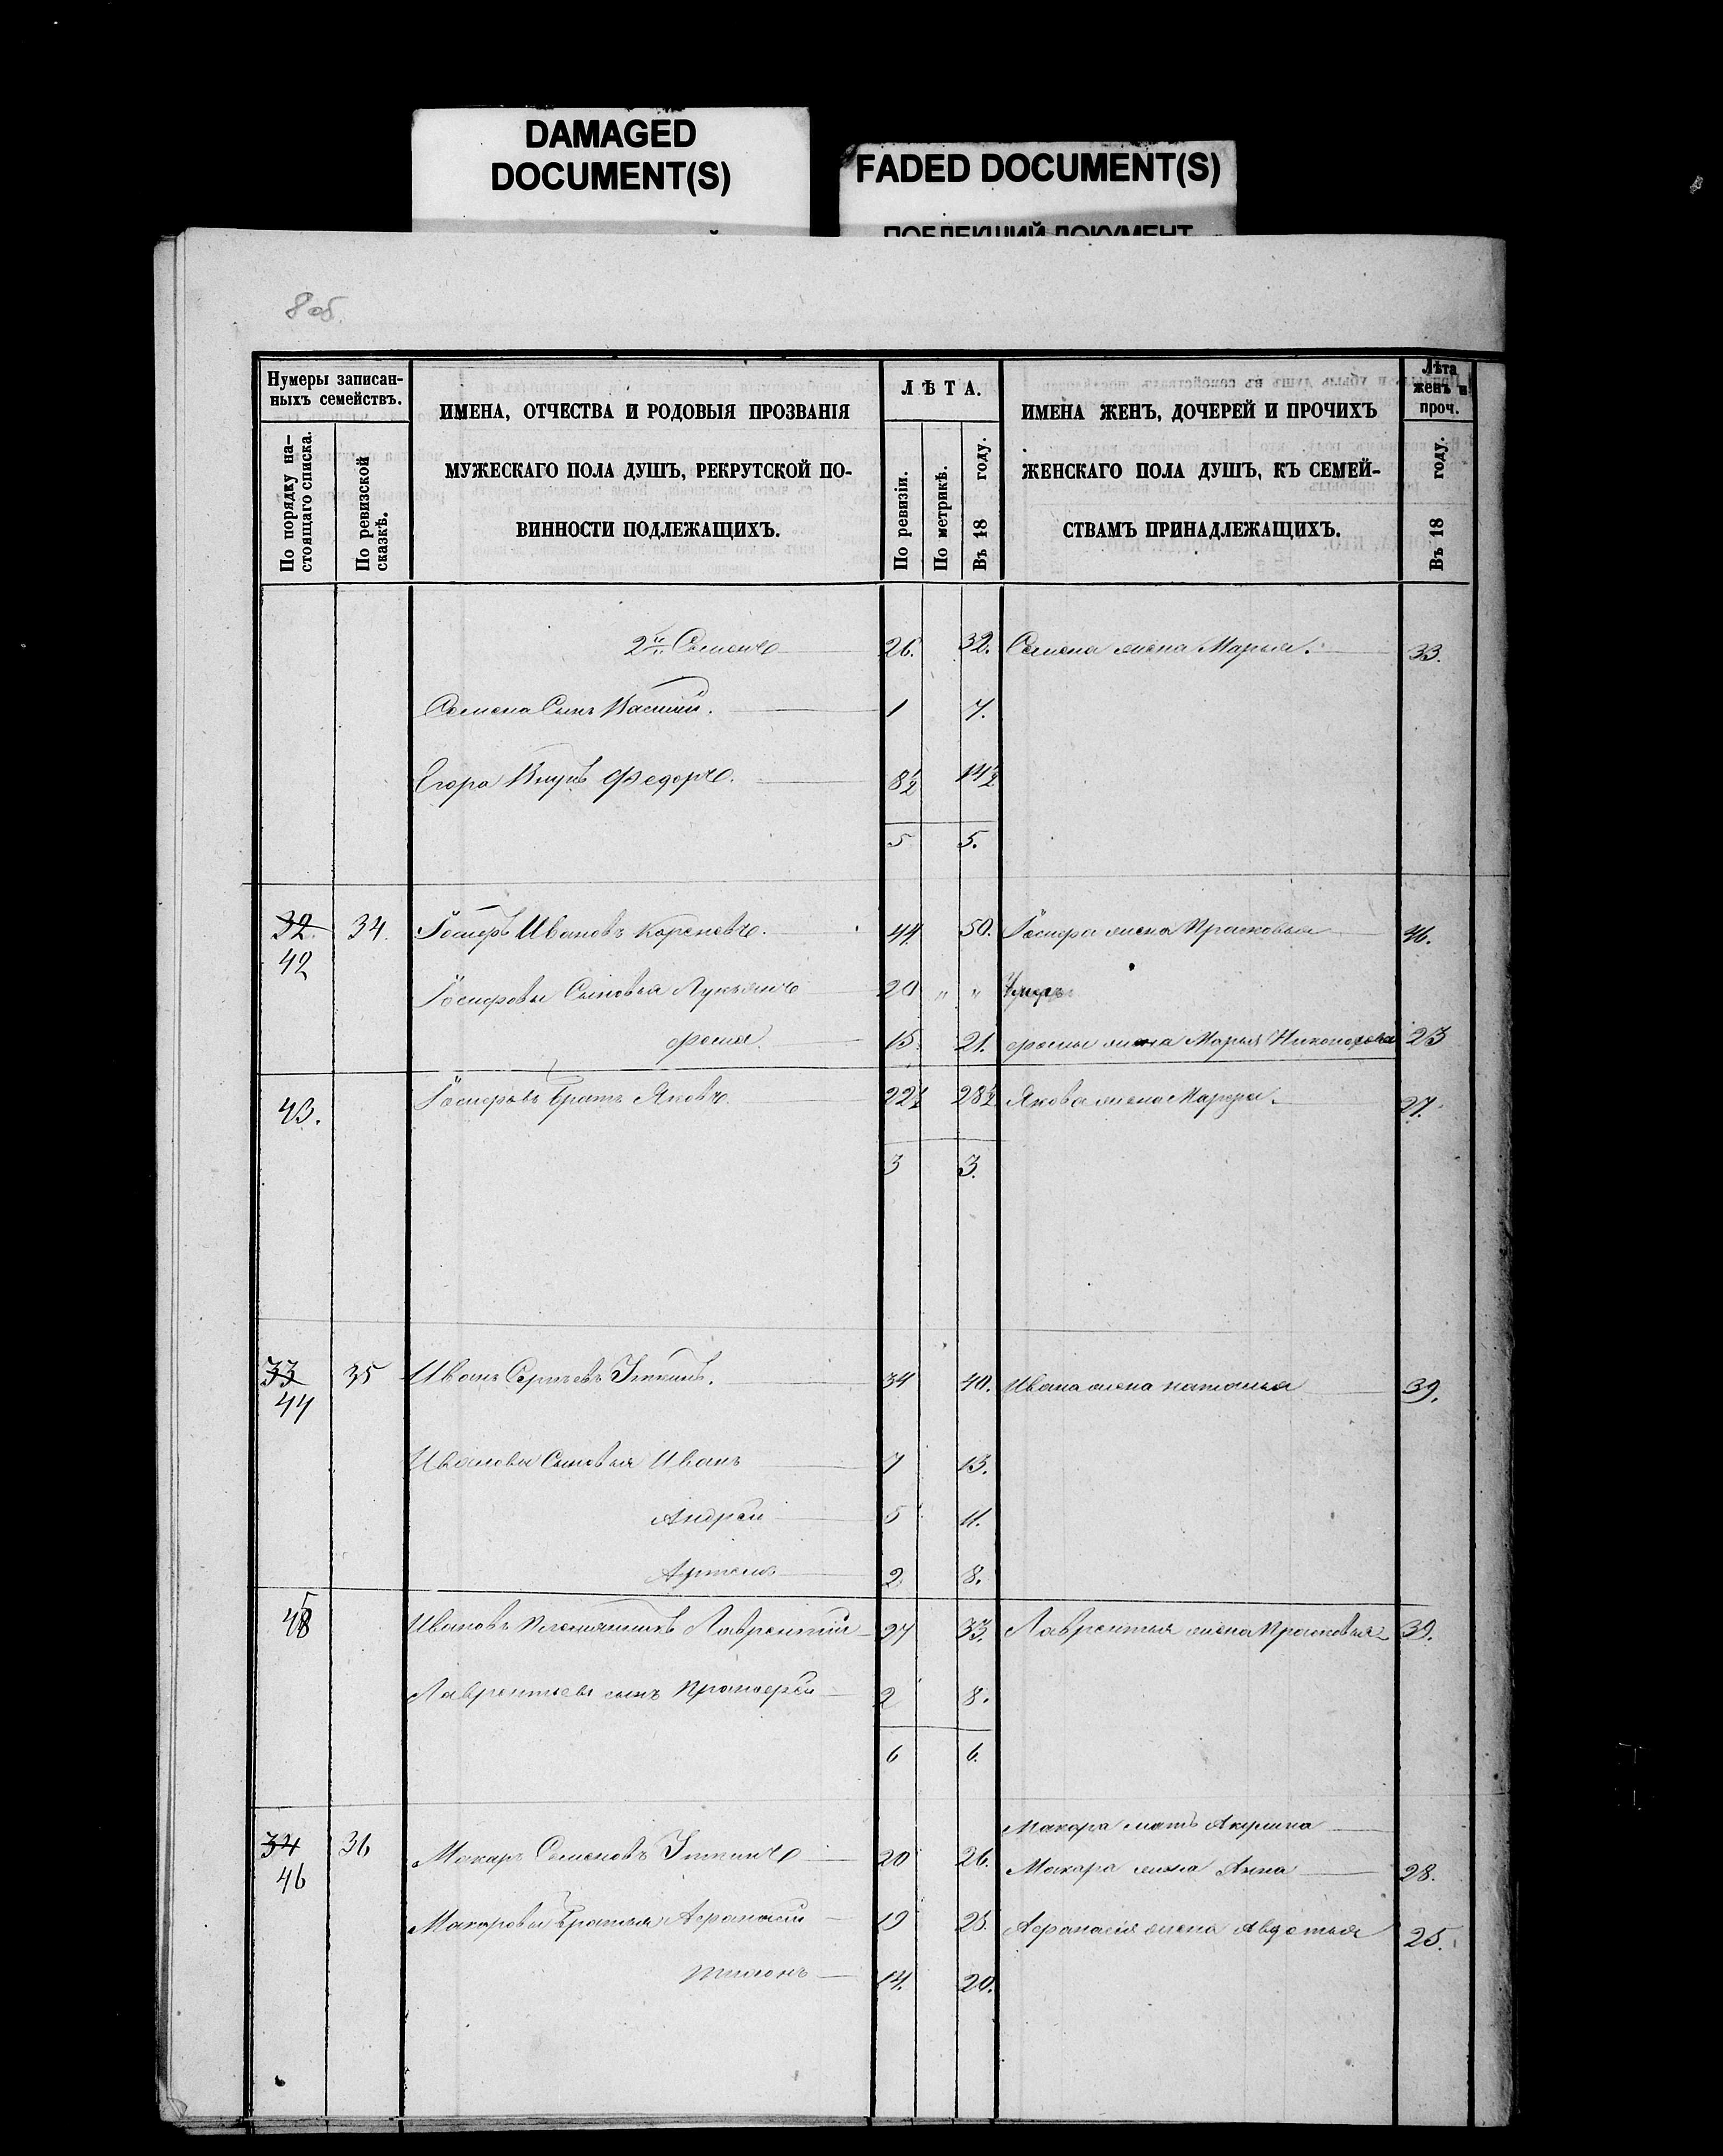 DAMAGED
DOCUMENT(S)
FADED DOCUMENT(S)
ПОБЛЕКШИЙ ДОКУМЕНТ
8 об.
Нумеры записан-
ныхъ семействъ.
По порядку на-
стоящаго списка.
По ревизской
сказкѣ.
ИМЕНА, ОТЧЕСТВА И РОДОВЫЯ ПРОЗВАНІЯ
МУЖЕСКАГО ПОЛА ДУШЪ, РЕКРУТСКОЙ ПО-
ВИННОСТИ ПОДЛЕЖАЩИХЪ.
ЛѢТА.
По ревизіи.
По метрикѣ.
Въ 18 году.
ИМЕНА ЖЕНЪ, ДОЧЕРЕЙ И ПРОЧИХЪ
ЖЕНСКАГО ПОЛА ДУШЪ, КЪ СЕМЕЙ-
СТВАМЪ ПРИНАДЛЕЖАЩИХЪ.
Лѣта
женъ и
проч.
Въ 18 году.
2й Семенъ 26. 32. Семена жена Марья. 33.
Семена Сынъ Василій. 1 7.
Егора Внукъ Федоръ. 8½ 14½
5 5.
32. 34. Іосифъ Ивановъ Кореневъ. 44 50. Іосифа жена Прасковья 46.
42
Іосифовы Сыновья Лукьянъ 20 " " Умеръ
фома 15. 21. фомы жена Марья Никонорова 23
43. Іосифовъ Братъ Яковъ. 22½ 28½ Якова жена Марфа. 27.
3 3.
33 35 Иванъ Сергѣевъ 34 40. Ивана жена наталья 39.
44
Ивановы Сыновья Иванъ 7 13.
Андрей 5 11.
Артемъ 2 8.
45 Ивановъ Племянникъ Лаврентій 27 33. Лаврентья жена Прасковья 39.
Лаврентьевъ сынъ Прокофей 2 8.
6 6.
Макара мать Акулина
34 36 Макаръ Семеновъ 20 26. Макара жена Анна 28.
46
Макаровы Братья Афанасій 19 25. Афанасія жена Авдотья 25.
тихонъ 14. 20.